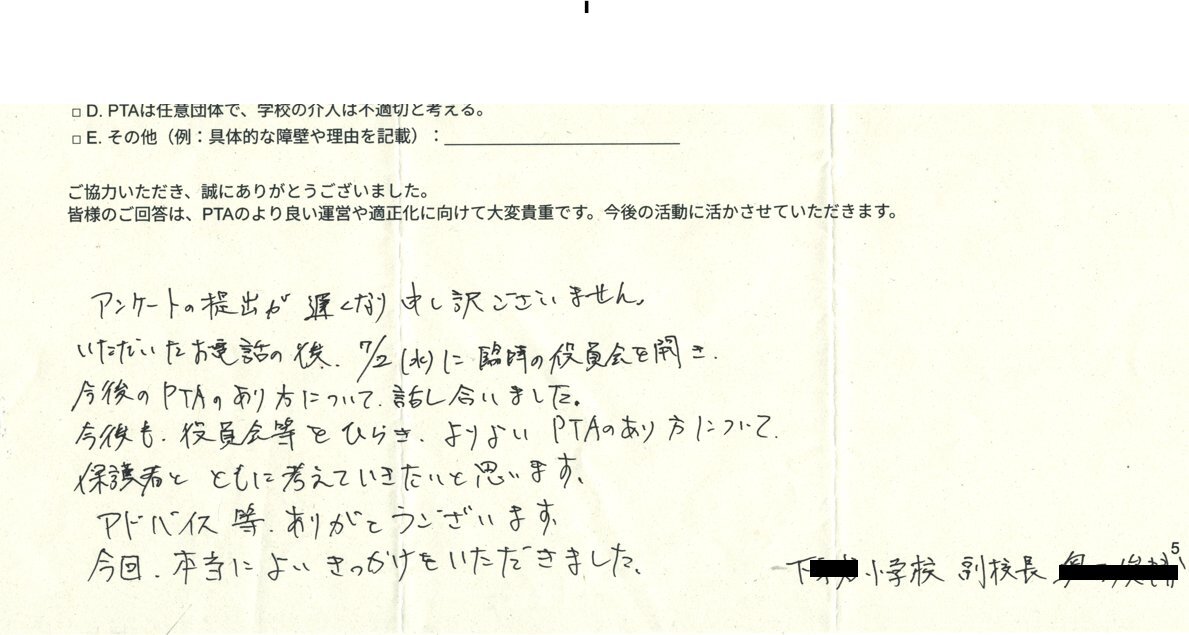 □ D. PTAは任意団体で、学校の介入は不適切と考える。
□ E. その他（例：具体的な障壁や理由を記載）：
ご協力いただき、誠にありがとうございました。
皆様のご回答は、PTAのより良い運営や適正化に向けて大変貴重です。今後の活動に活かさせていただきます。
アンケートの提出が遅くなり申し訳ございません。
いただいたお電話の後、7/2(水)に臨時の役員会を開き、
今後のPTAのあり方について、話し合いました。
今後も、役員会等をひらき、よりよいPTAのあり方について、
保護者とともに考えていきたいと思います。
アドバイス等、ありがとうございます。
今回、本当によいきっかけをいただきました。
5
下 小学校 副校長